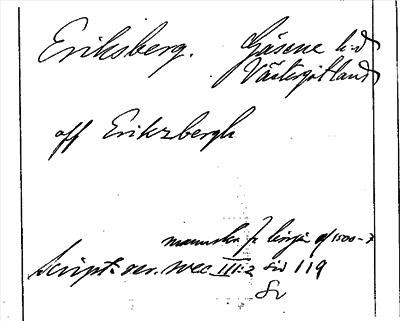 Eriksberg. Gäsene hd
Västergötland
off Erikzbergh
manuskr fr början af 1500-t
Script: rer. svec III:2 sid 119
Sv